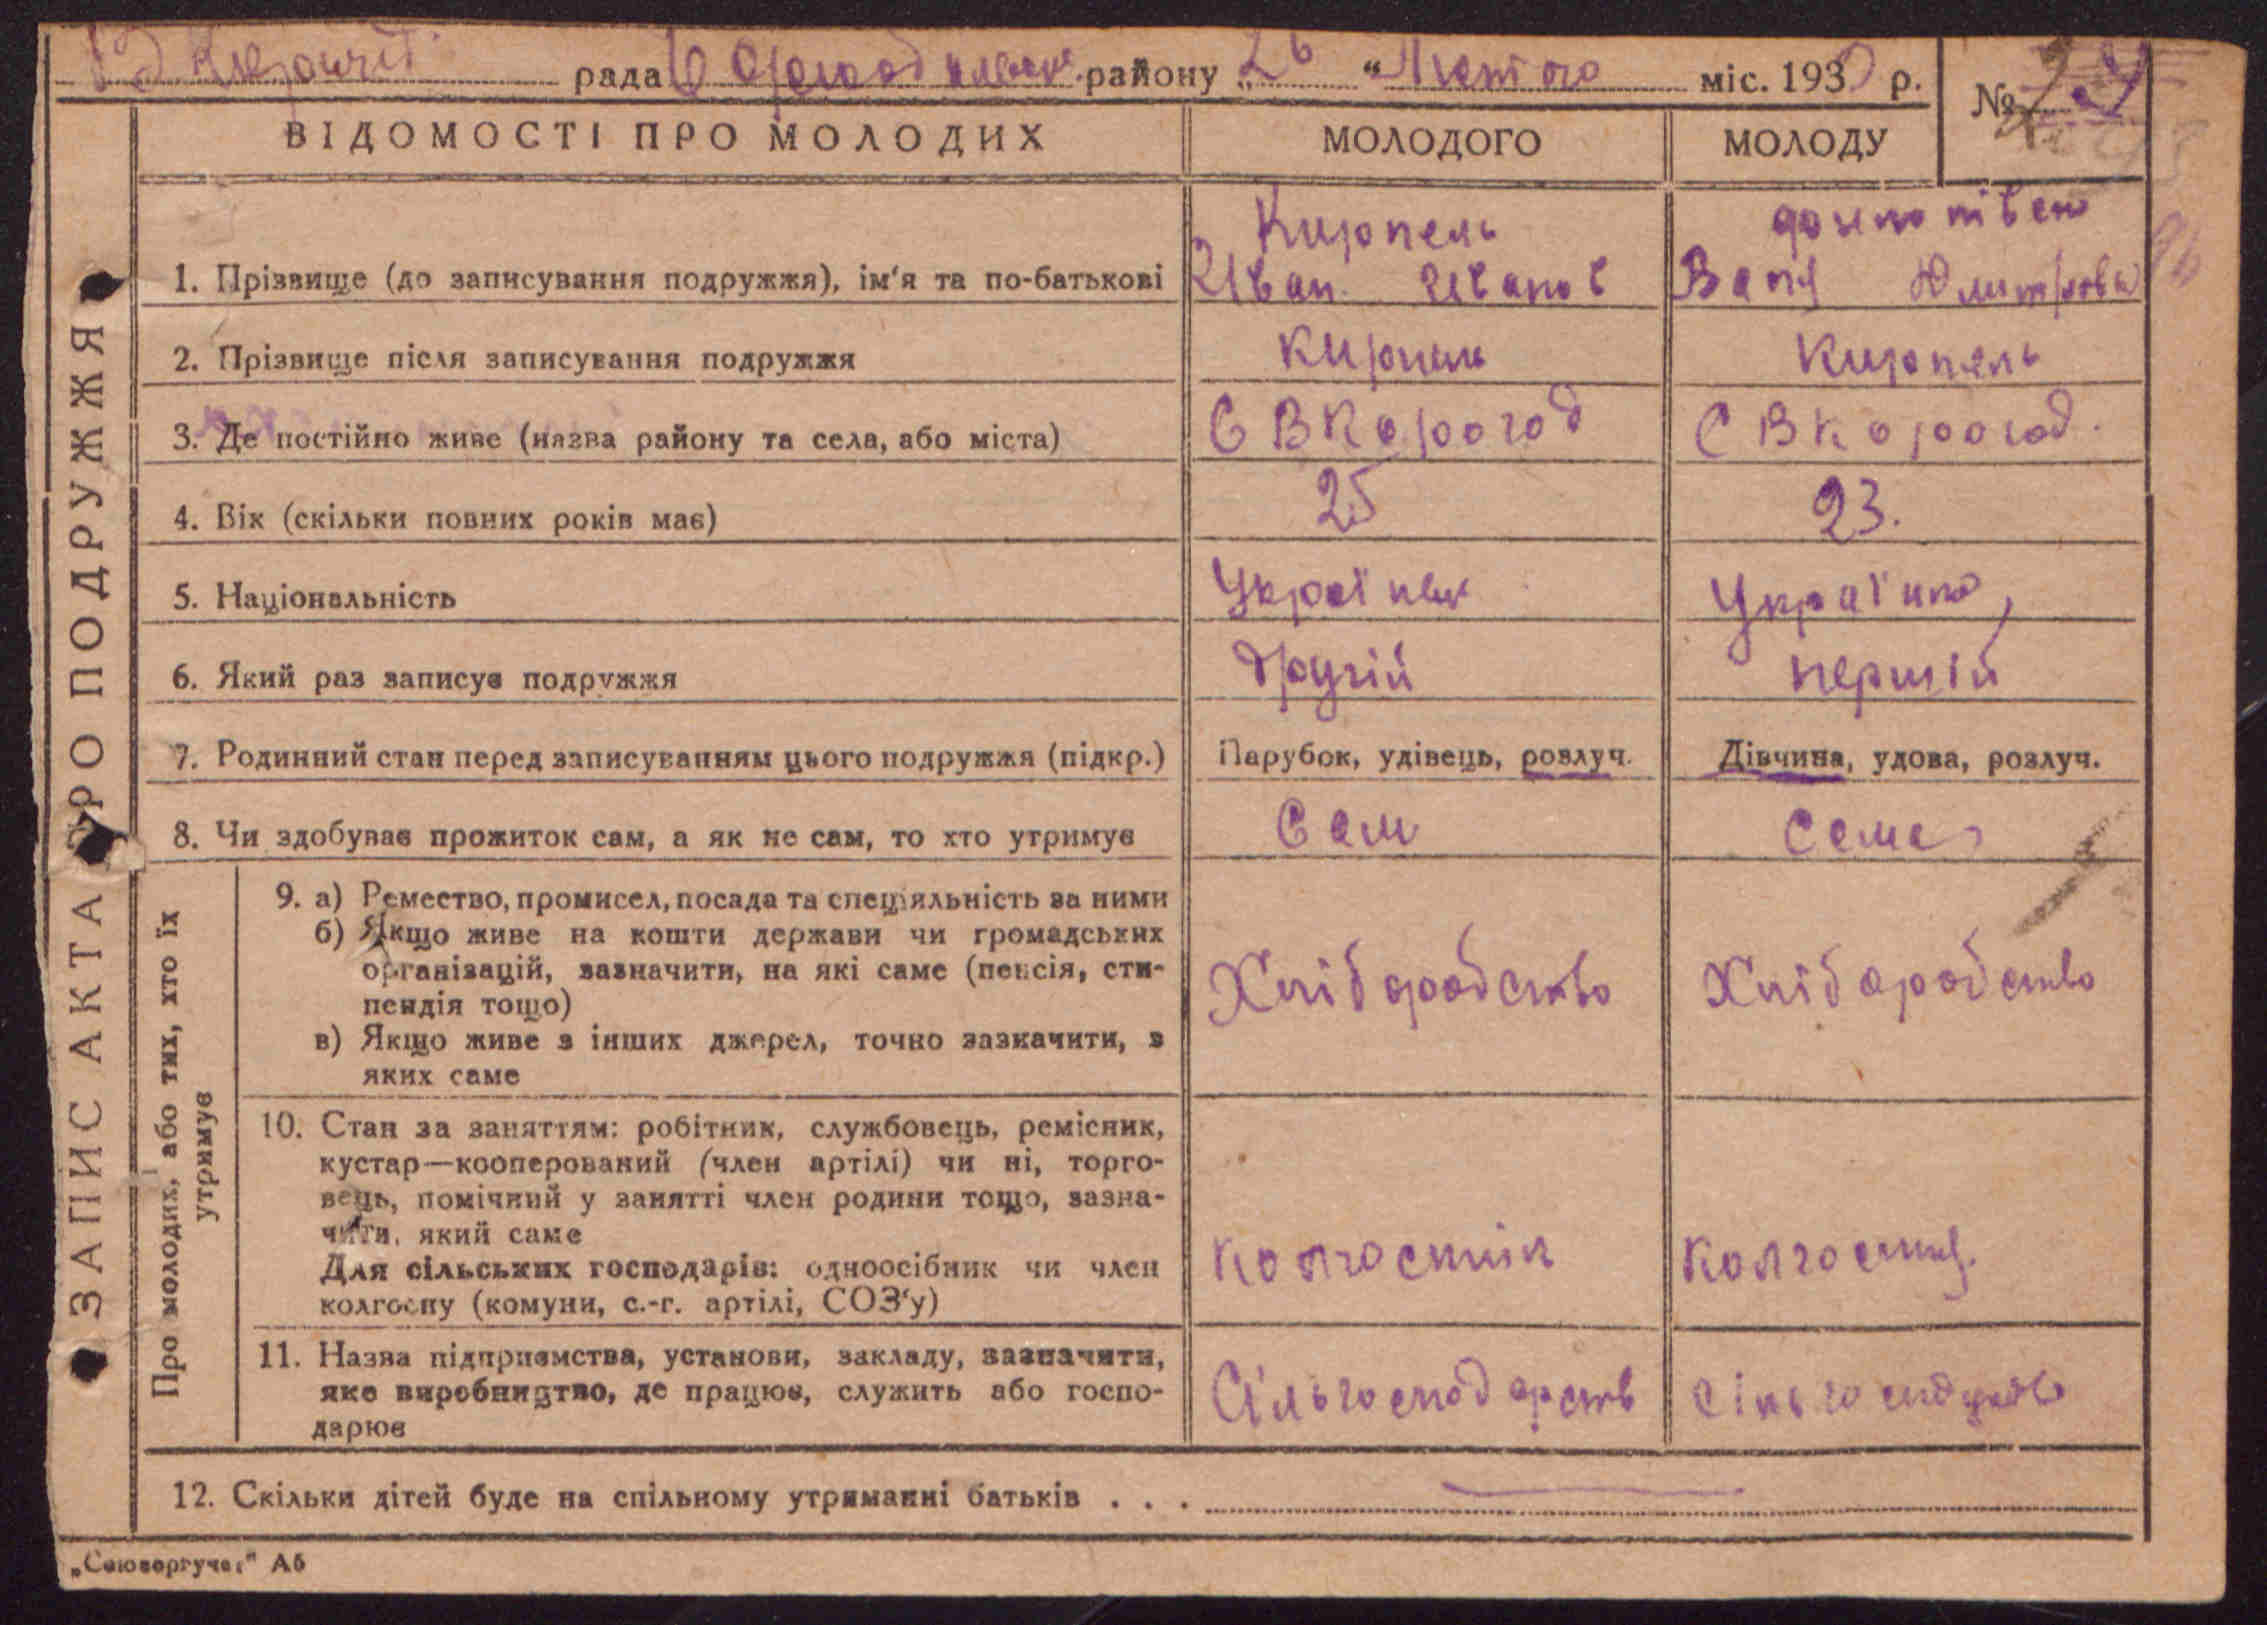 рада району „26 “ Лютого міс. 193 р.
№
ВІДОМОСТІ ПРО МОЛОДИХ МОЛОДОГО МОЛОДУ
ЗАПИС АКТА ПРО ПОДРУЖЖЯ
Кирпель
1. Прізвище (до записування подружжя), ім‘я та по-батькові Иван. Иванов Дмитровн
2. Прізвище після записування подружжя Кирпель Кирпель
3. Де постійно живе (назва району та села, або міста) С В Корогод С В Корогод.
4. Вік (скільки повних років має) 25 23.
5. Національність Українец Українка
6. Який раз записує подружжя другій першій
7. Родинний стан перед записуванням цього подружжя (підкр.) Парубок, удівець, розлуч. Дівчина, удова, розлуч.
8. Чи здобуває прожиток сам, а як не сам, то хто утримує Сам Сама
Про молодих, або тих, хто їх
утримує
9. а) Ремество, промисел, посада та спеціяльність за ними
б) Якщо живе на кошти держави чи громадських
організацій, зазначити, на які саме (пенсія, сти-
пендія тощо) Хлібаробство Хлібаробство
в) Якщо живе з інших джерел, точно зазначити, з
яких саме
10. Стан за заняттям: робітник, службовець, ремісник,
кустар—кооперований (член артілі) чи ні, торго-
вець, помічний у занятті член родини тощо, зазна-
чити, який саме
Для сільських господарів: одноосібник чи член
колгоспу (комуни, с.-г. артілі, СОЗ‘у) Колгоспнік
11. Назва підприємства, установи, закладу, зазначити,
яке виробництво, де працює, служить або госпо-
дарює Сільгосподарств
12. Скільки дітей буде на спільному утриманні батьків . . .
„Союзоргучет“ А5